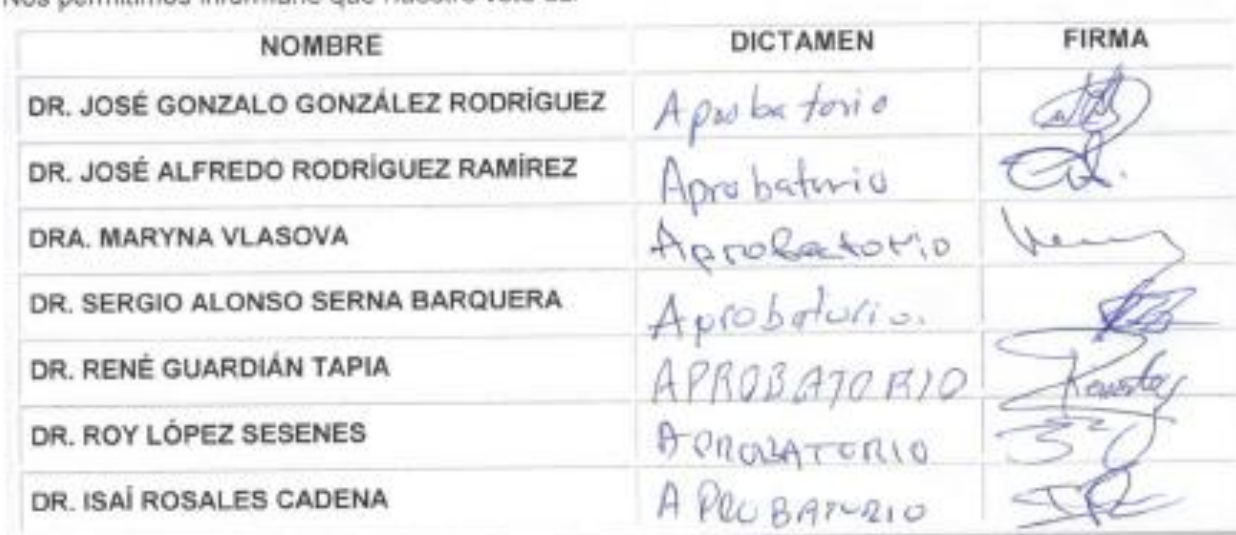 Nos permitimos informarle que nuestro voto es:
NOMBRE DICTAMEN FIRMA
DR. JOSÉ GONZALO GONZÁLEZ RODRÍGUEZ Aprobatorio
DR. JOSÉ ALFREDO RODRÍGUEZ RAMÍREZ Aprobatorio
DRA. MARYNA VLASOVA Aprobatorio
DR. SERGIO ALONSO SERNA BARQUERA Aprobatorio.
DR. RENÉ GUARDIÁN TAPIA APROBATORIO
DR. ROY LÓPEZ SESENES APROBATORIO
DR. ISAÍ ROSALES CADENA APROBATORIO